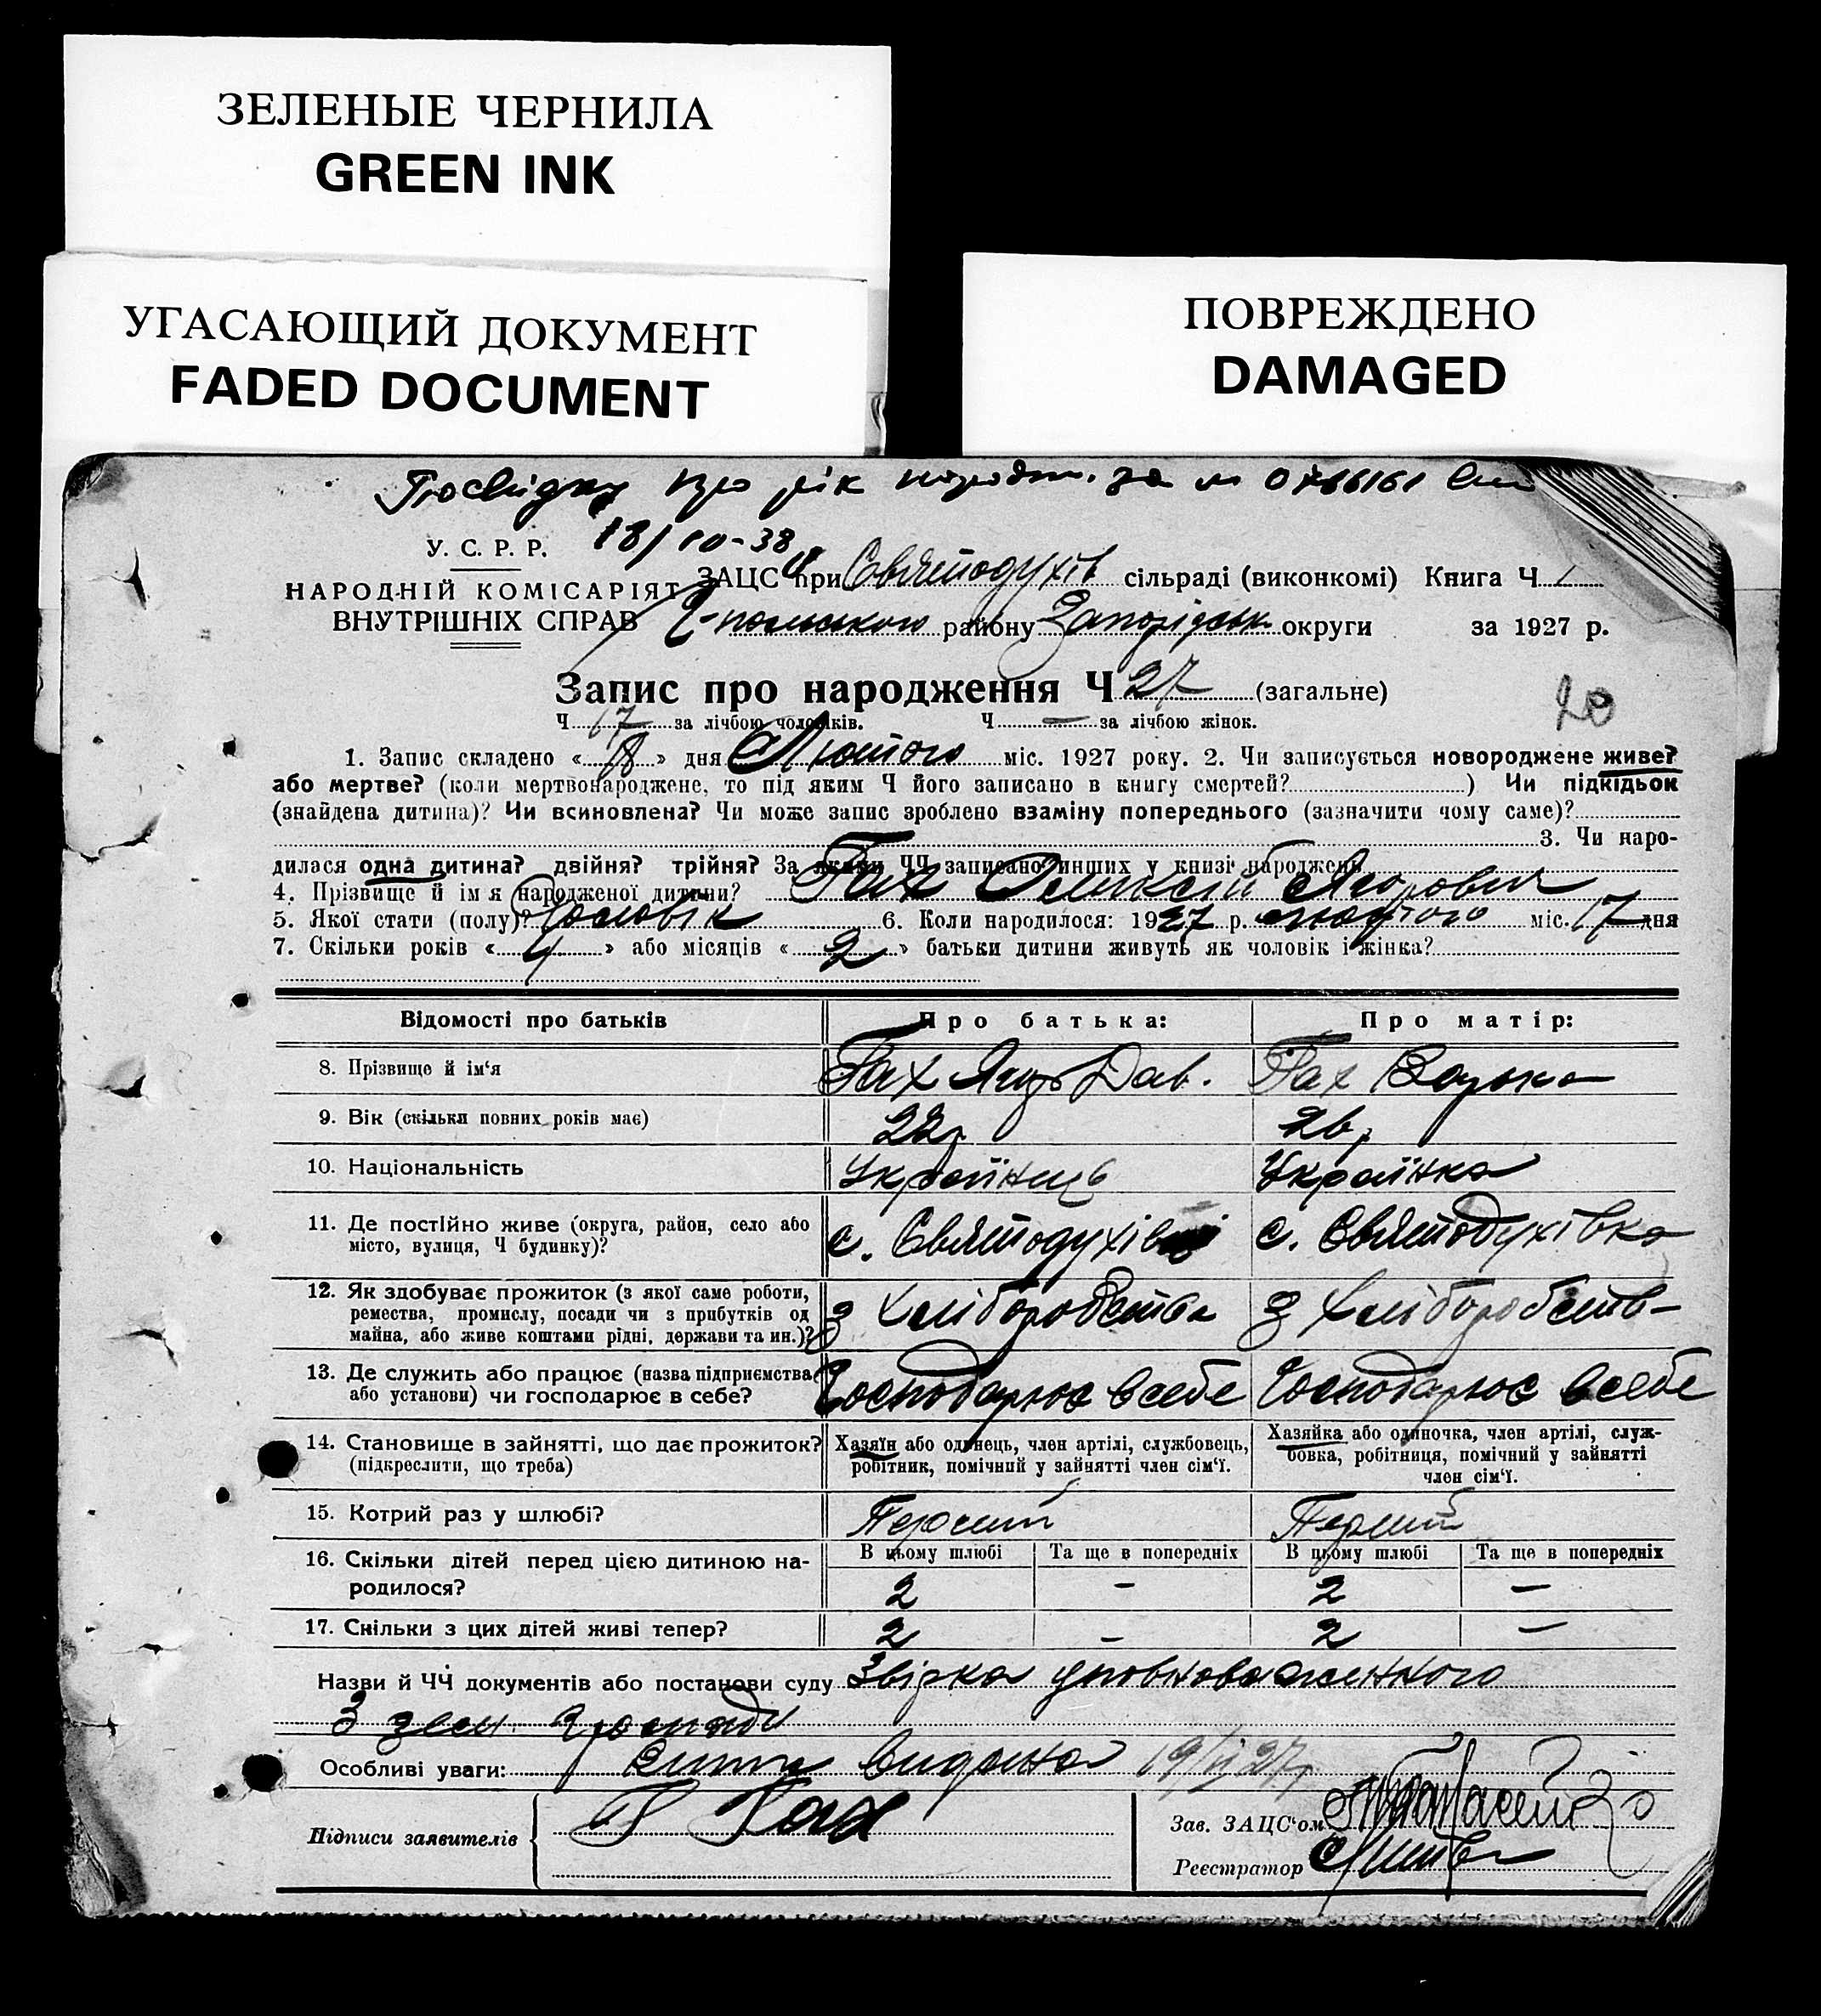 ЗЕЛЕНЫЕ ЧЕРНИЛА
GREEN INK
УГАСАЮЩИЙ ДОКУМЕНТ
FADED DOCUMENT
ПОВРЕЖДЕНО
DAMAGED
про рік народж. за № 0766161
18/10-38
У. С. Р. Р.
НАРОДНІЙ КОМІСАРІЯТ
ВНУТРІШНІХ СПРАВ
ЗАЦС при Святодухів сільраді (виконкомі) Книга Ч 1
району Запорізськ округи за 1927 р.
Запис про народження Ч 27 (загальне)
20
Ч 17 за лічбою чоловіків. Ч — за лічбою жінок.
1. Запис складено « 18 » дня Лютого міс. 1927 року. 2. Чи записується новороджене живе?
або мертве? (коли мертвонароджене, то під яким Ч його записано в книгу смертей? ) Чи підкідьок
(знайдена дитина)? Чи всиновлена? Чи може запис зроблено взаміну попереднього (зазначити чому саме)?
3. Чи наро-
дилася одна дитина? двійня? трійня? За якими ЧЧ записано инших у книзі народжень
4. Прізвище й ім'я народженої дитини? Гах Олексій Ягорович
5. Якої стати (полу)? Чоловік 6. Коли народилося: 1927 р. лютого міс. 17 дня
7. Скільки років « 4 » або місяців « 2 » батьки дитини живуть як чоловік і жінка?
Відомості про батьків Про батька: Про матір:
8. Прізвище й ім'я Гах Ягор Дав. Гах
9. Вік (скільки повних років має) 22 р 26 р
10. Національність Українець Українка
11. Де постійно живе (округа, район, село або
місто, вулиця, Ч будинку)? с. Святодухівці с. Святодухівка
12. Як здобуває прожиток (з якої саме роботи,
ремества, промислу, посади чи з прибутків од
майна, або живе коштами рідні, держави та ин.)? З хліборобства З хліборобств
13. Де служить або працює (назва підприємства
або установи) чи господарює в себе? Господарює в себе Господарює в себе
14. Становище в зайнятті, що дає прожиток?
(підкреслити, що треба)
Хазяїн або одинець, член артілі, службовець,
робітник, помічний у зайнятті член сім'ї.
Хазяйка або одиночка, член артілі, служ-
бовка, робітниця, помічний у зайнятті
член сім'ї.
15. Котрий раз у шлюбі? Перший Перший
16. Скільки дітей перед цією дитиною на-
родилося?
В цьому шлюбі Та ще в попередніх В цьому шлюбі Та ще в попередніх
2 – 2 –
17. Скільки з цих дітей живі тепер? 2 – 2 –
Назви й ЧЧ документів або постанови суду Звірка уповноваженного
З зем. громади
Особливі уваги: видана 19/II 27 р
Підписи заявителів Гах
Зав. ЗАЦС'ом
Реєстратор